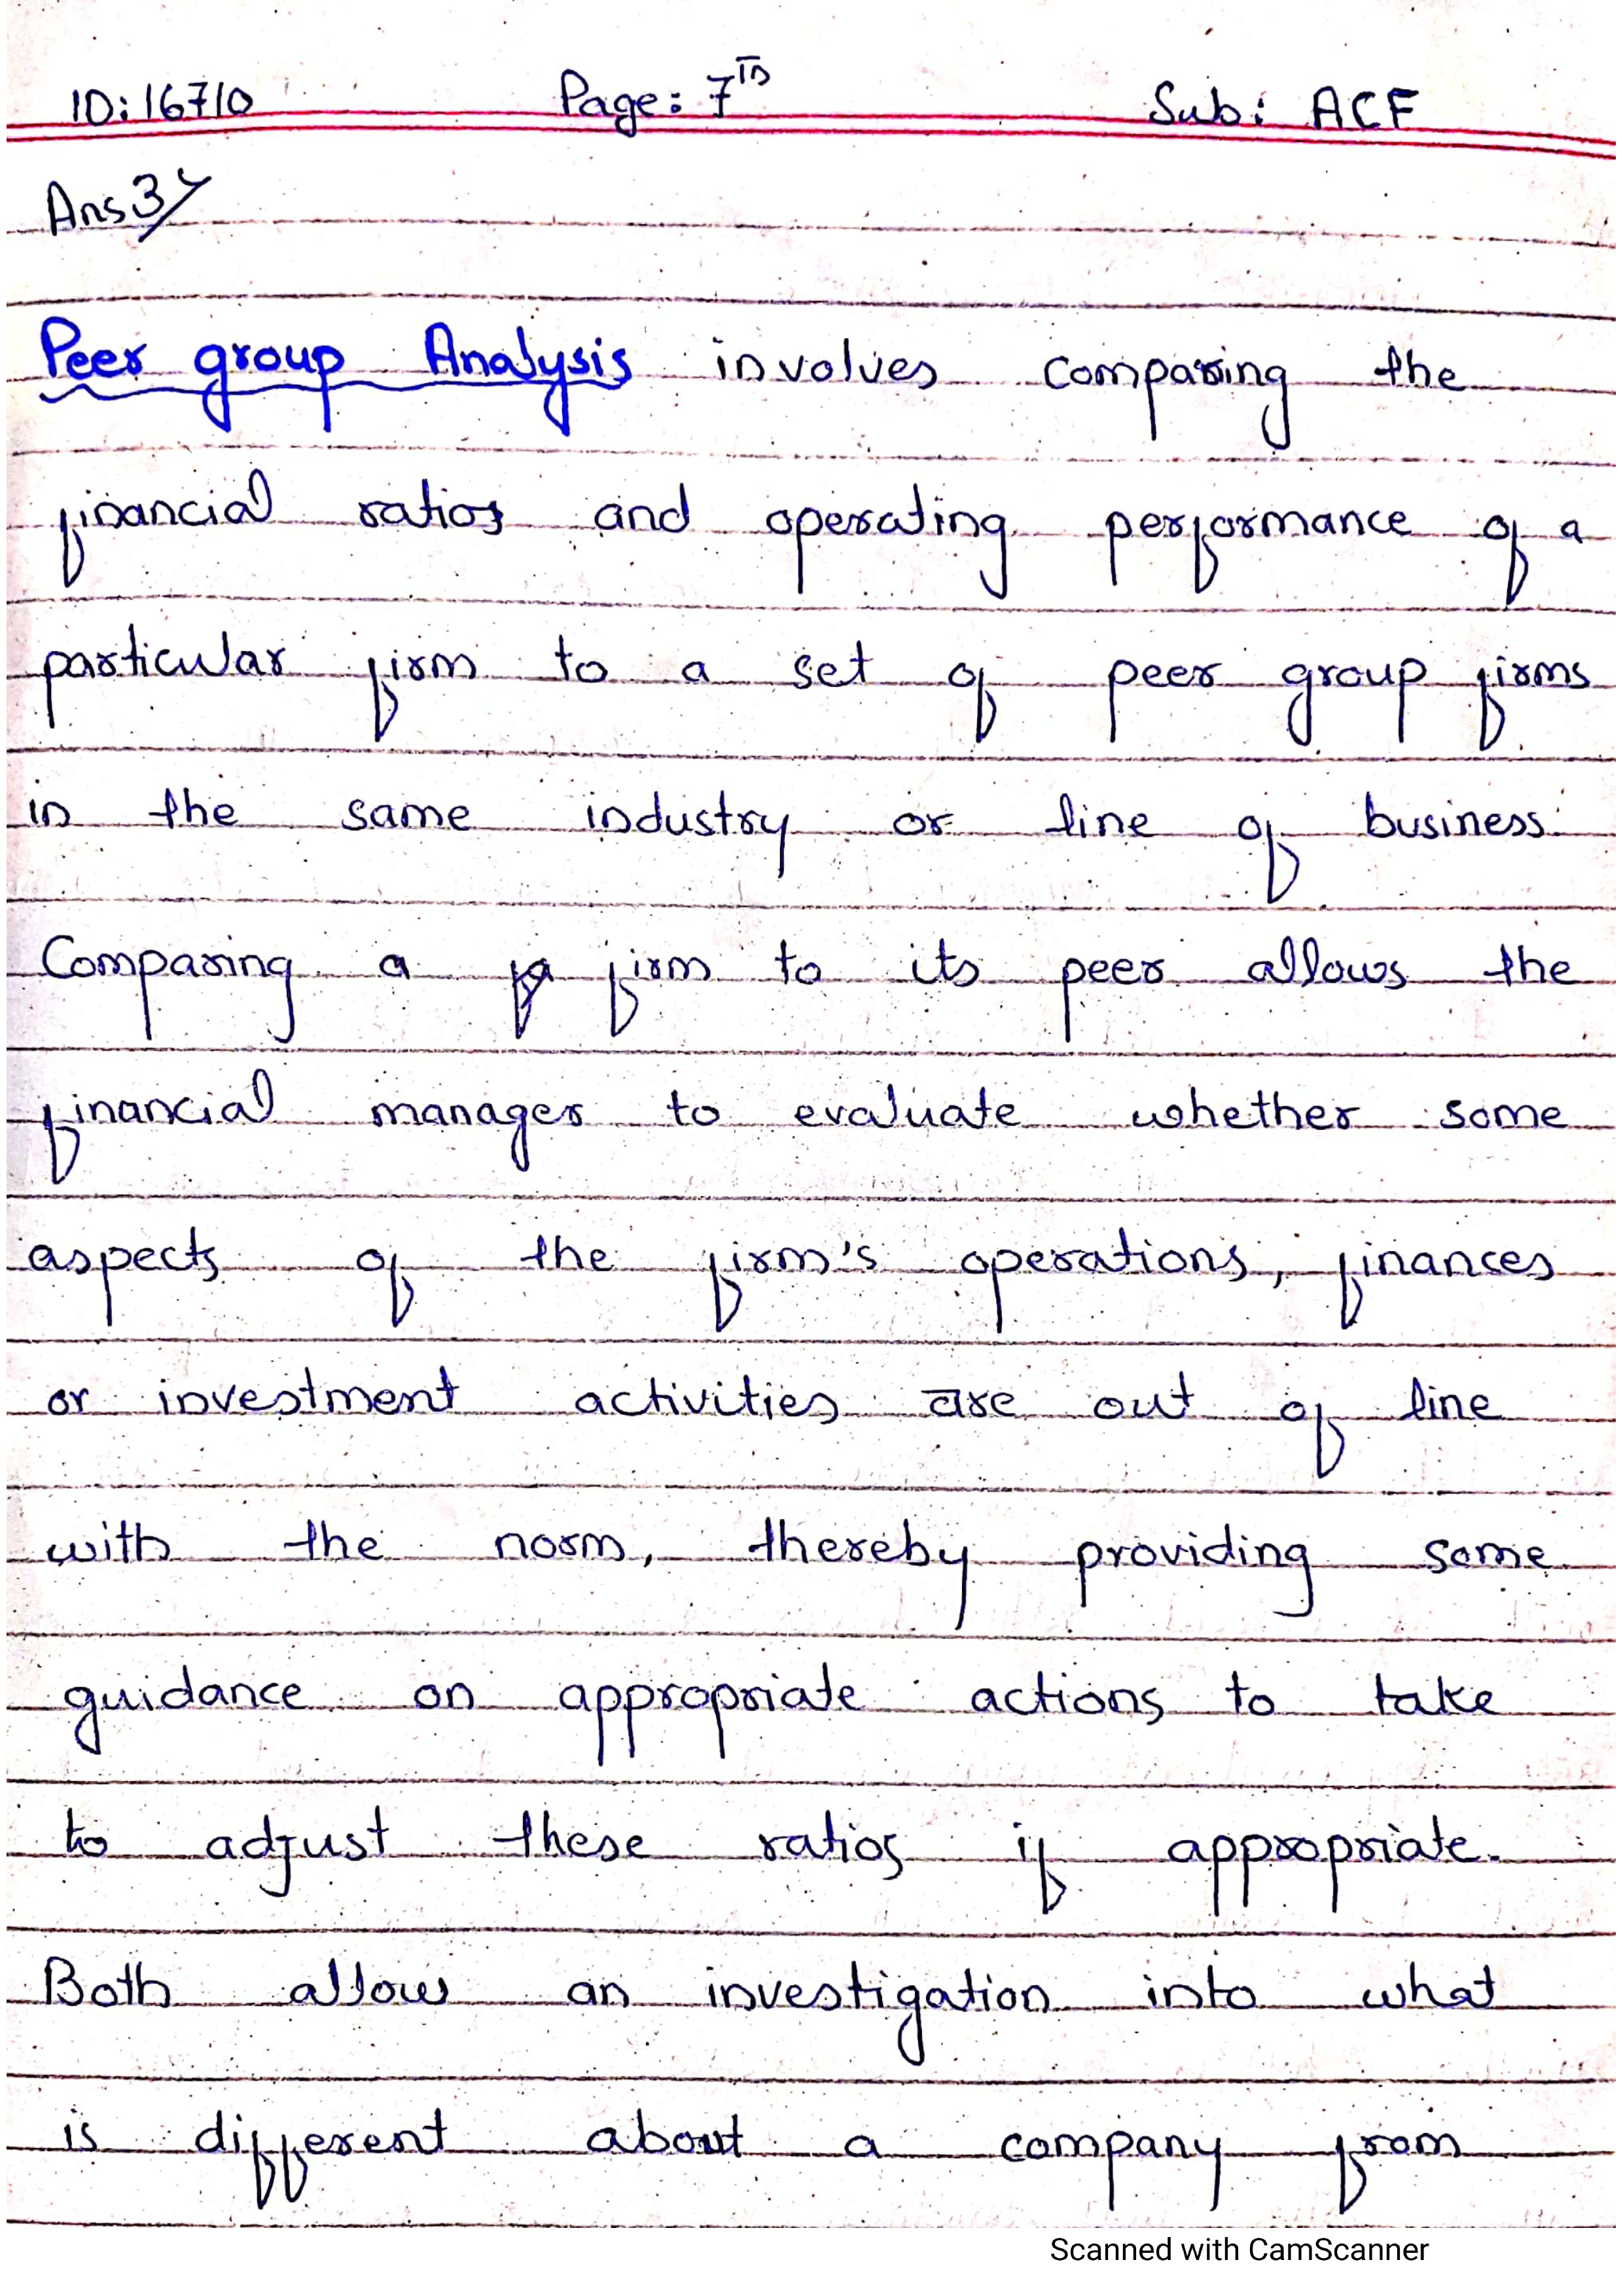 ID: 16710 Page: 7th Sub: ACF
Ans 3/
Peer group Analysis involves comparing the
financial ratios and operating performance of a
particular firm to a set of peer group firms
in the same industry or line of business.
Comparing a firm to its peer allows the
financial manager to evaluate whether some
aspects of the firm's operations, finances
or investment activities are out of line
with the norm, thereby providing some
guidance on appropriate actions to take
to adjust these ratios if appropriate.
Both allow an investigation into what
is different about a company from
Scanned with CamScanner